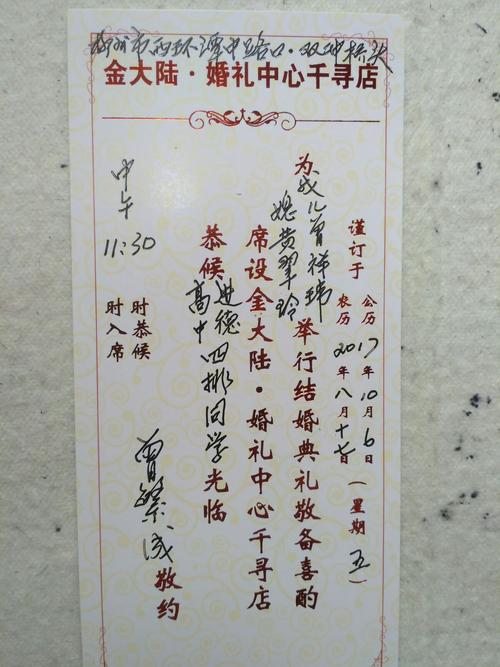 柳州市西环潭中路口·双冲桥头
金大陆·婚礼中心千寻店
谨订于
公历2017年10月6日(星期五)
农历2017年八月十七日
为我儿曾祥玮
媳黄翠玲举行结婚典礼敬备喜酌
席设金大陆·婚礼中心千寻店
恭候进德
高中四排同学光临
曾繁成敬约
中午
11:30
时恭候
时入席